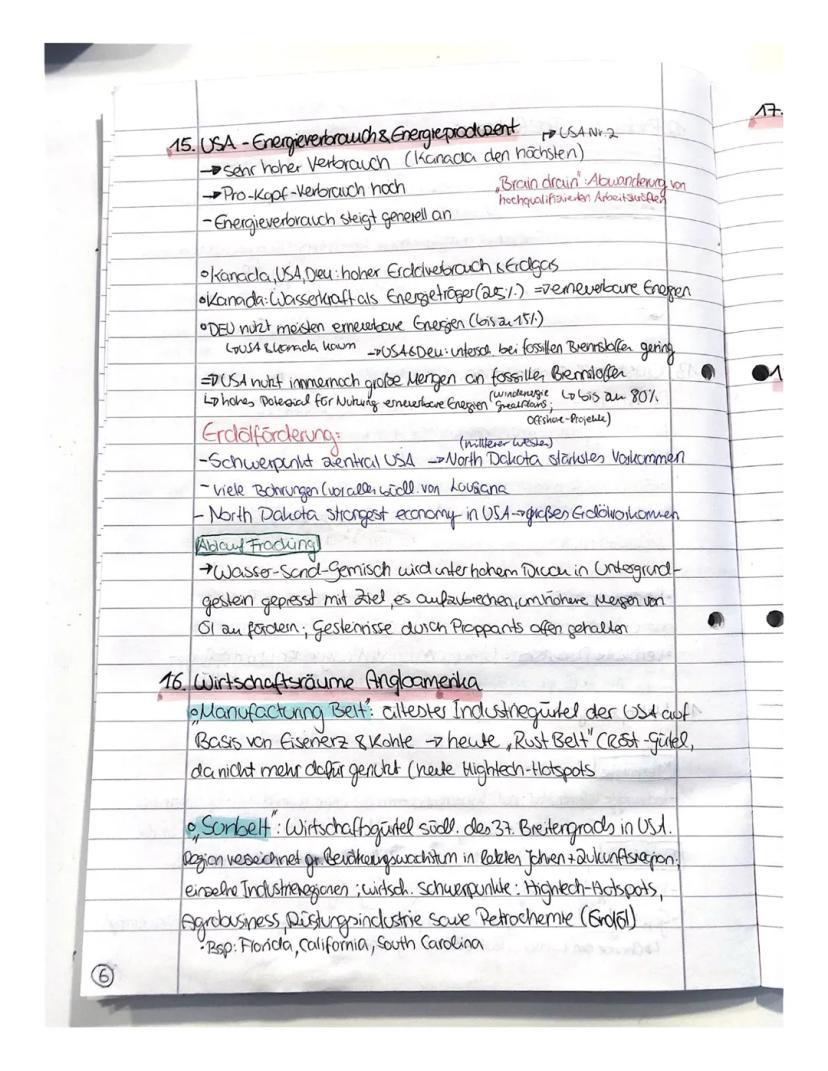 17.
15. USA - Energieverbrauch & Energieproduzent → USA Nr. 2
→ sehr hoher Verbrauch (Kanada den höchsten)
→ Pro-Kopf-Verbrauch hoch
„Brain drain": Abwanderung von
hochqualifizierten Arbeitskräften
- Energieverbrauch steigt generell an
• Kanada, USA, Deu: hoher Erdölverbrauch & Erdgas
• Kanada: Wasserkraft als Energieträger (25%) => erneuerbare Energien
• DEU nutzt meisten erneuerbare Energien (bis zu 15%)
↳ USA & Kanada kaum → USA & Deu: untersch. bei fossilen Brennstoffen gering
=> USA nutzt immernoch große Mengen an fossillen Brennstoffen
↳ bis zu 80%
↳ hohes Potenzial für Nutzung erneuerbare Energien (Windenergie Great Plains;
Offshore-Projekte)
Erdölförderung:
(mittlerer Westen)
- Schwerpunkt zentral USA → North Dakota stärkstes Vorkommen
- viele Bohrungen (vor allem südl. von Lousana
- North Dakota strongest economy in USA → großes Erdölvorkommen
Ablauf Fracking
→ Wasser-Sand-Gemisch wird unter hohem Druck in Untergrund-
gestein gepresst mit Ziel, es aufzubrechen, um höhere Mengen von
Öl zu fördern; Gesteinrisse durch Proppants offen gehalten
16. Wirtschaftsräume Angloamerika
• „Manufacturing Belt": ältester Industriegürtel der USA auf
Basis von Eisenerz & Kohle → heute „Rust Belt" (Rost-Gürtel,
da nicht mehr dafür genutzt (heute Hightech-Hotspots
• „Sunbelt": Wirtschaftsgürtel südl. des 37. Breitengrads in USA.
Region verzeichnet gr. Bevölkerungswachstum in letzten Jahren + Zukunftsregion;
einzelne Industrieregionen; wirtsch. Schwerpunkte: Hightech-Hotspots,
Agrobusiness, Rüstungsindustrie sowie Petrochemie (Erdöl)
• Bsp: Florida, California, South Carolina
6